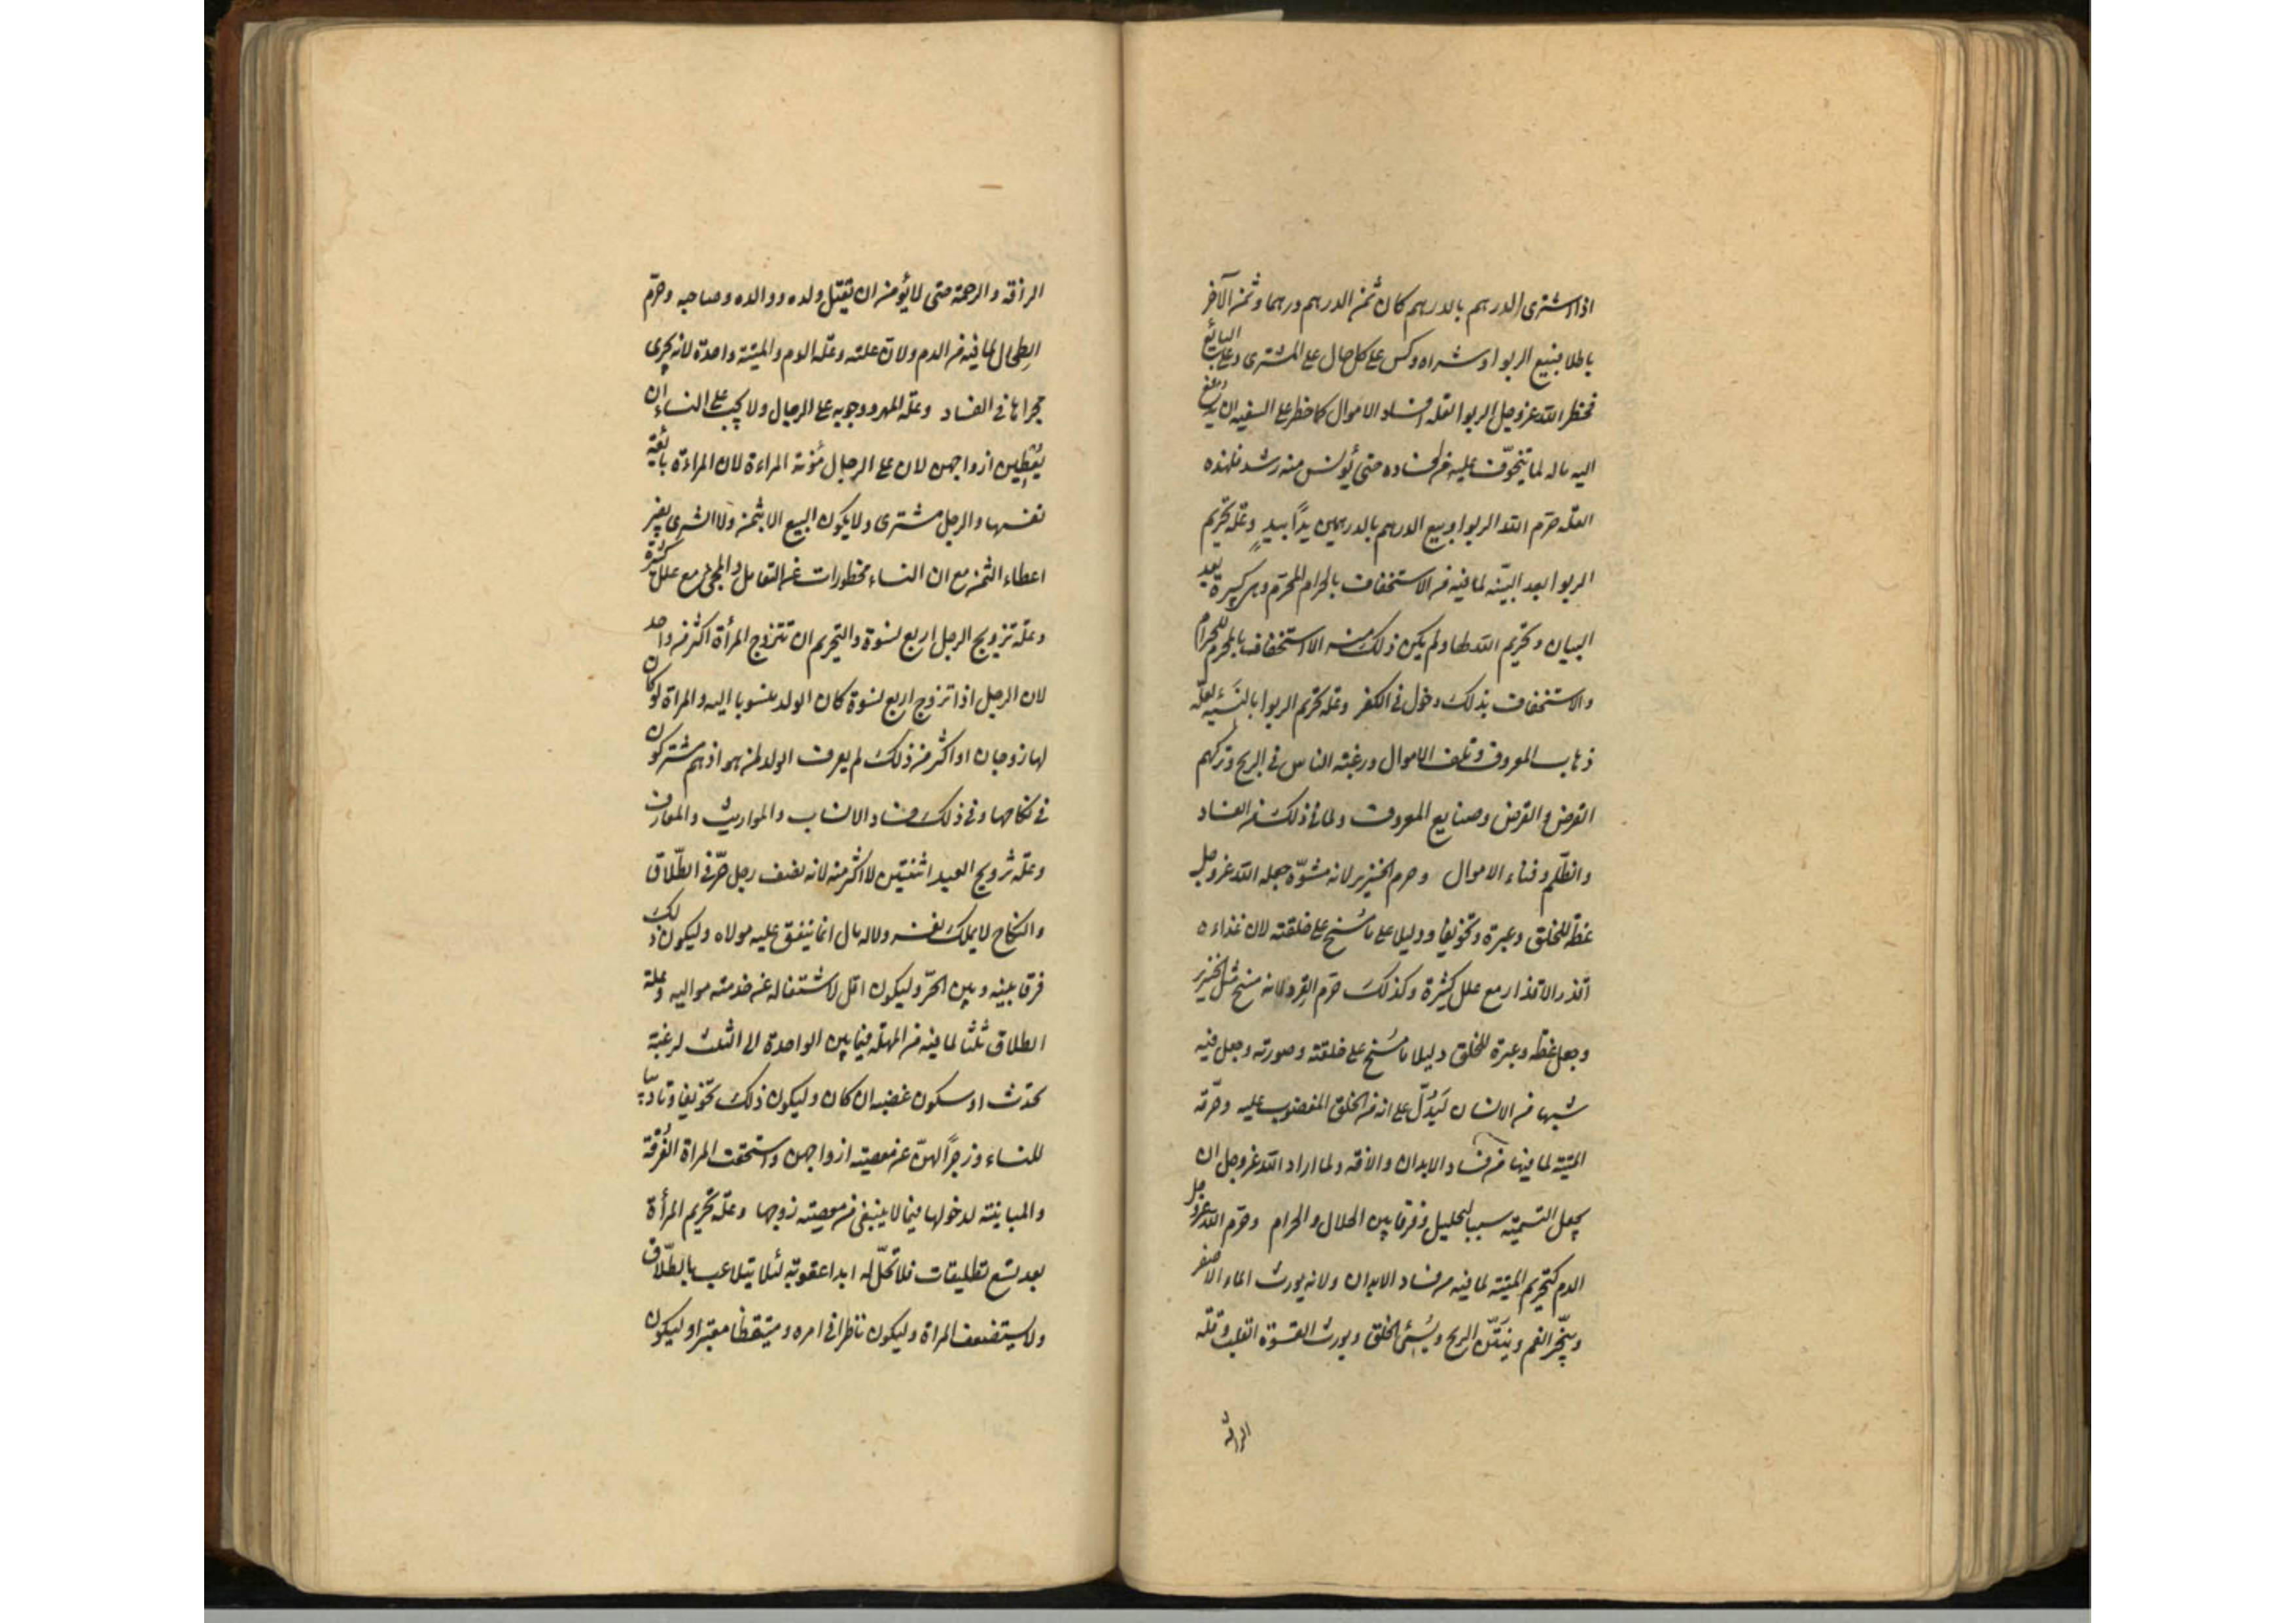 اذا اشترى الدرهم بالدرهم كان ثمن الدرهم درهما وثمن الآخر
باطلا فبيع الربوا وشراه وكس على كل حال على المشترى وعلى البائع
فحظر الله عز وجل الربوا لعلة فساد الاموال كما حظر على السفيه ان يدفع
اليه ماله لما يتخوف عليه من افساده حتى يؤنس منه رشد فلهذه
العلة حرم الله الربوا وبيع الدرهم بالدرهمين يدًا بيدٍ وعلة تحريم
الربوا بعد البينة لما فيه من الاستخفاف بالحرام المحرّم وهى كبيرة بعد
البيان وتحريم الله لها ولم يكن ذلك منه الا استخفاف بالمحرم للحرام
والاستخفاف بذلك دخول فى الكفر وعلة تحريم الربوا بالنسيه لعلّة
ذهاب المعروف وتلف الاموال ورغبة الناس فى الربح وتركهم
القرض والفرض وصنايع المعروف ولما فى ذلك من الفساد
والظلم وفناء الاموال وحرم الخنزير لانه مشوّه جعله الله عز وجل
عظة للخلق وعبرة وتخويفا ودليلا على ما مُسخ على خلقته لان غذاءه
اقذر الاقذار مع علل كثيرة وكذلك حرّم القرد لانه مسخ مثل الخنزير
وجعل عظة وعبرة للخلق دليلا ما مُسخ على خلقته وصورته وجعل فيه
شبها من الانسان ليَدُلّ على انه من الخلق المغضوب عليه وحرّمة
الميتة لما فيها من فساد الابدان والآفة ولما اراد الله عز وجل ان
يجعل التسمية سببا لتحليل وفرقا بين الحلال والحرام وحرّم الله عز وجل
الدم كتحريم الميتة لما فيه من فساد الابدان ولانه يورث الماء الاصفر
ويبخّر الفم وينتّن الريح ويُسيئ الخلق ويورث القسوة القلب وقلة
الرافة
الرأفة والرحمة حتى لا يؤمن ان يقتل ولده ووالده وصاحبه وحرّم
الطِحال لما فيه من الدم ولانّ علته وعلّة الدم والميتة واحدة لانه يجرى
مجراها فى الفساد وعلّة المهر ووجوبه على الرجال ولا يجب على النساء ان
يُعْطِين ازواجهن لان على الرجال مُؤنة المراءة لان المراءة بائعة
نفسها والرجل مشترى ولا يكون البيع الا بثمن ولا الشرى بغير
اعطاء الثمن مع ان النساء محظورات عن التعامل والمجئ مع علل كثيرة
وعلّة تزويج الرجل اربع نسوة والتحريم ان تتزوج المرأة اكثر من واحد
لان الرجل اذا تزوج اربع نسوة كان الولد منسوبا اليه والمراة لو كان
لها زوجان او اكثر من ذلك لم يعرف الولد لمن هو اذ هم مشتركون
فى نكاحها وفى ذلك فساد الانساب والمواريث والمعارف
وعلّة تزويج العبد اثنتين لا اكثر منه لانه نصف رجل حرّ فى الطّلاق
والنكاح لا يملك نفسه ولا له مال انما ينفق عليه مولاه وليكون ذلك
فرقا بينه وبين الحرّ وليكون اقل لاشتغاله عن خدمة مواليه وعلة
الطلاق ثلثا لما فيه من المهلة فيما بين الواحدة الى الثلث لرغبة
تحدث او سكون غضبه ان كان وليكون ذلك تخويفا وتاديبا
للنساء وزجرًا لهنّ عن معصية ازواجهن واستحقت المراة الفُرْقة
والمباينة لدخولها فيما لا ينبغى من معصية زوجها وعلّة تحريم المرأة
بعد تسع تطليقات فلا تحلّ له ابدا عقوبة لئلا يتلاعب بالطّلاق
ولا يستضعف المراة وليكون ناظرا فى امره ومتيقظا معتبرا وليكون